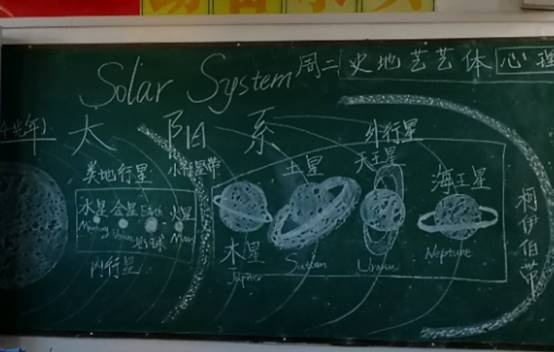 Solar System
周二 史地艺艺体 心理
太阳系
类地行星
小行星带
外行星
水星 金星 Earth 火星
Mercury Venus 地球 Mars
内行星
木星
Jupiter
土星
Saturn
天王星
Uranus
海王星
Neptune
柯伊伯带